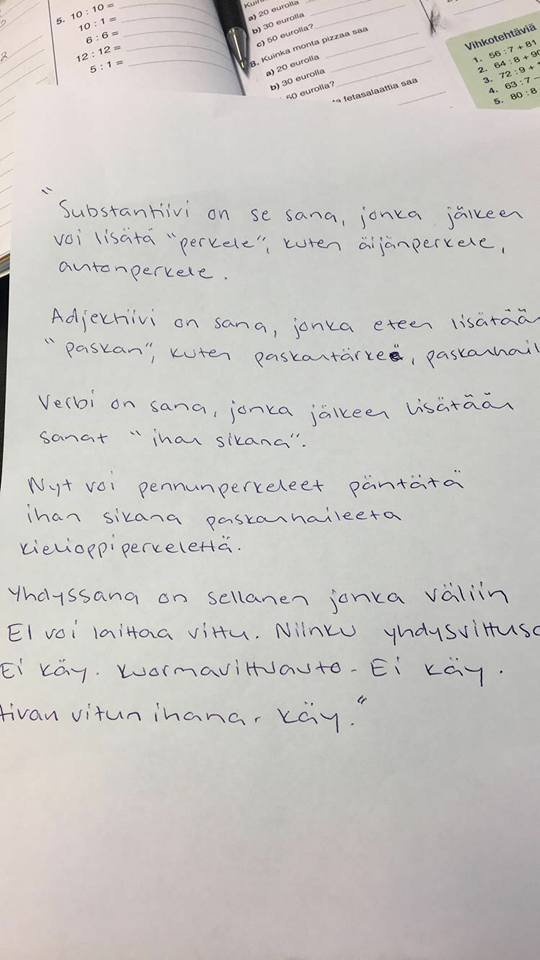 5. 10 : 10 =
10 : 1 =
6 : 6 =
12 : 12 =
5 : 1 =
a) 20 eurolla
b) 30 eurolla
c) 50 eurolla?
8. Kuinka monta pizzaa saa
a) 20 eurolla
b) 30 eurolla
50 eurolla?
fetasalaattia saa
Vihkotehtäviä
1. 56 : 7 + 81
2. 64 : 8 + 90
3. 72 : 9 +
4. 63 : 7 –
5. 80 : 8
"Substantiivi on se sana, jonka jälkeen
voi lisätä "perkele", kuten äijänperkele,
autonperkele.
Adjektiivi on sana, jonka eteen lisätään
"paskan", kuten paskantärkeä, paskanhail
Verbi on sana, jonka jälkeen lisätään
sanat "ihan sikana".
Nyt voi pennunperkeleet päntätä
ihan sikana paskanhaileeta
kielioppiperkelettä.
Yhdyssana on sellanen jonka väliin
EI voi laittaa vittu. Niinku yhdysvittusa
Ei käy. Kuormavittuauto - Ei käy.
tivan vitun ihana - käy."